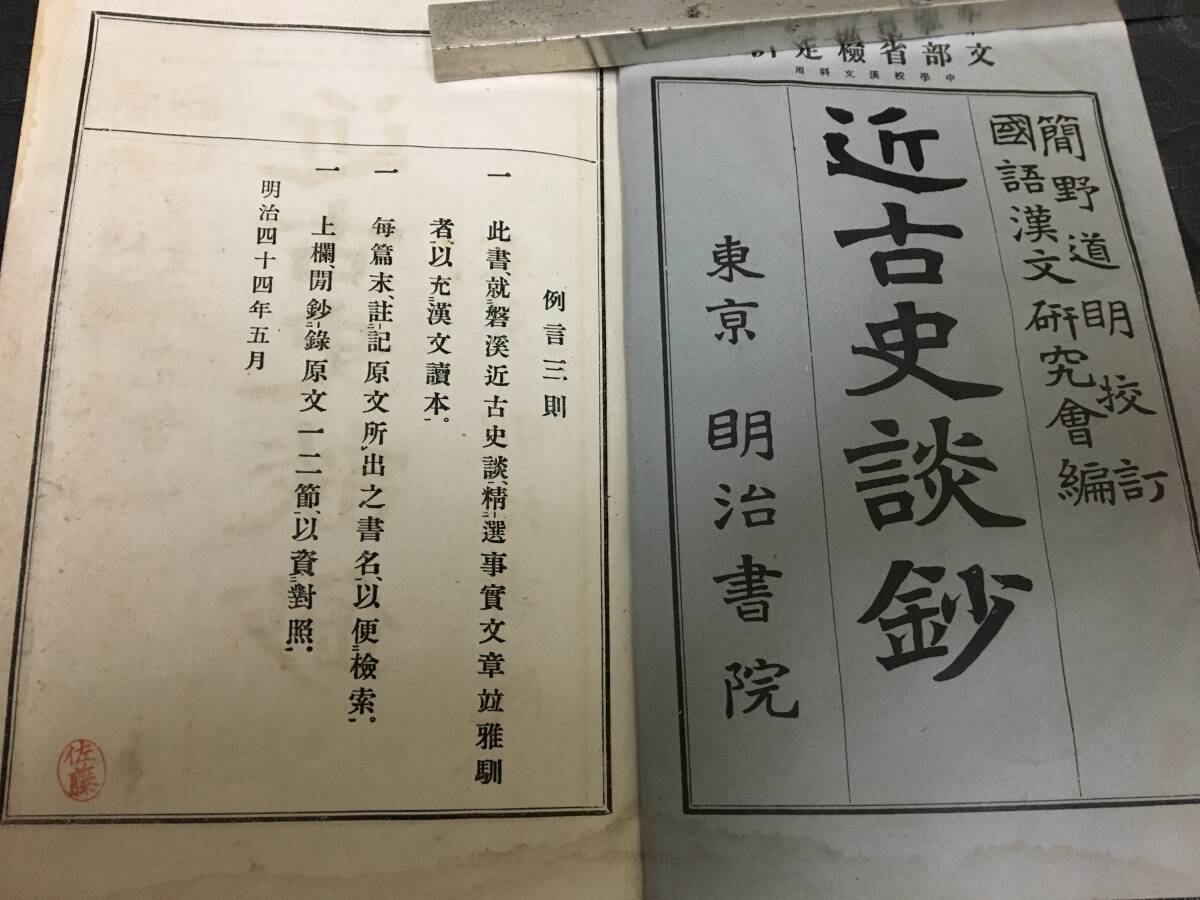 文部省檢定
中學校漢文科用
簡野道明校訂
國語漢文研究會編
近古史談鈔
東京 明治書院
例言三則
一 此書、就磐溪近古史談、精選事實文章竝雅馴
者、以充漢文讀本。
一 每篇末、註記原文所出之書名、以便檢索。
一 上欄、閒鈔錄原文一二節、以資對照。
明治四十四年五月
佐藤